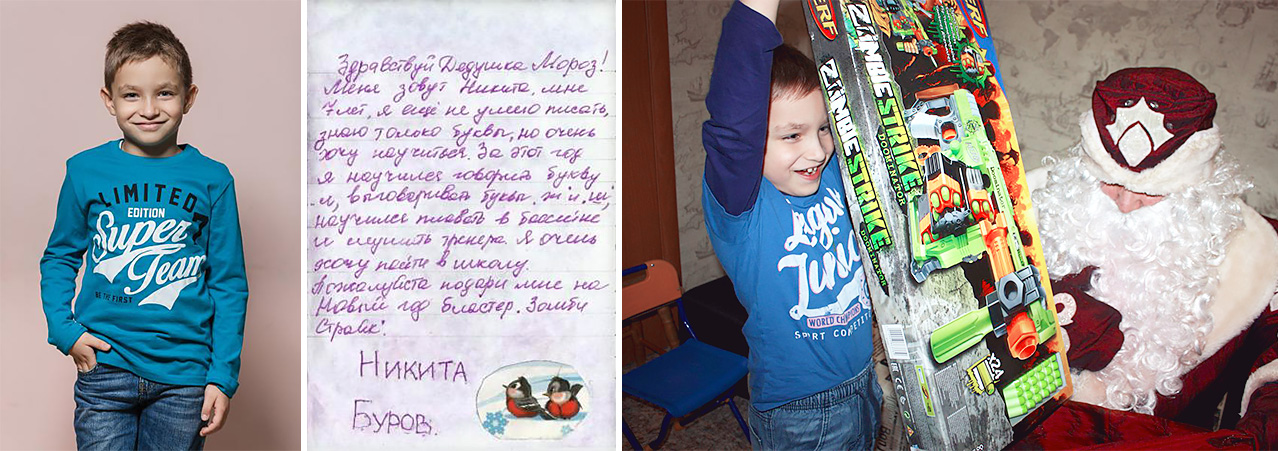 LIMITED
EDITION
Super
Team
BE THE FIRST
7
Здравствуй Дедушка Мороз!
Меня зовут Никита, мне
7 лет, я ещё не умею писать,
знаю только буквы, но очень
хочу научиться. За этот год
я научился говорить букву
л, выговаривать буквы ж и ш,
научился плавать в бассейне
и слушать тренера. Я очень
хочу пойти в школу.
Пожалуйста подари мне на
Новый год бластер. Зомби
Страйк.
НИКИТА
БУРОВ.
NERF
ZOMBIE STRIKE
DOOMINATOR
ZOMBIE STRIKE
DOOMINATOR
x24
WORLD CHAMPIONS
SPORT COMPETIT